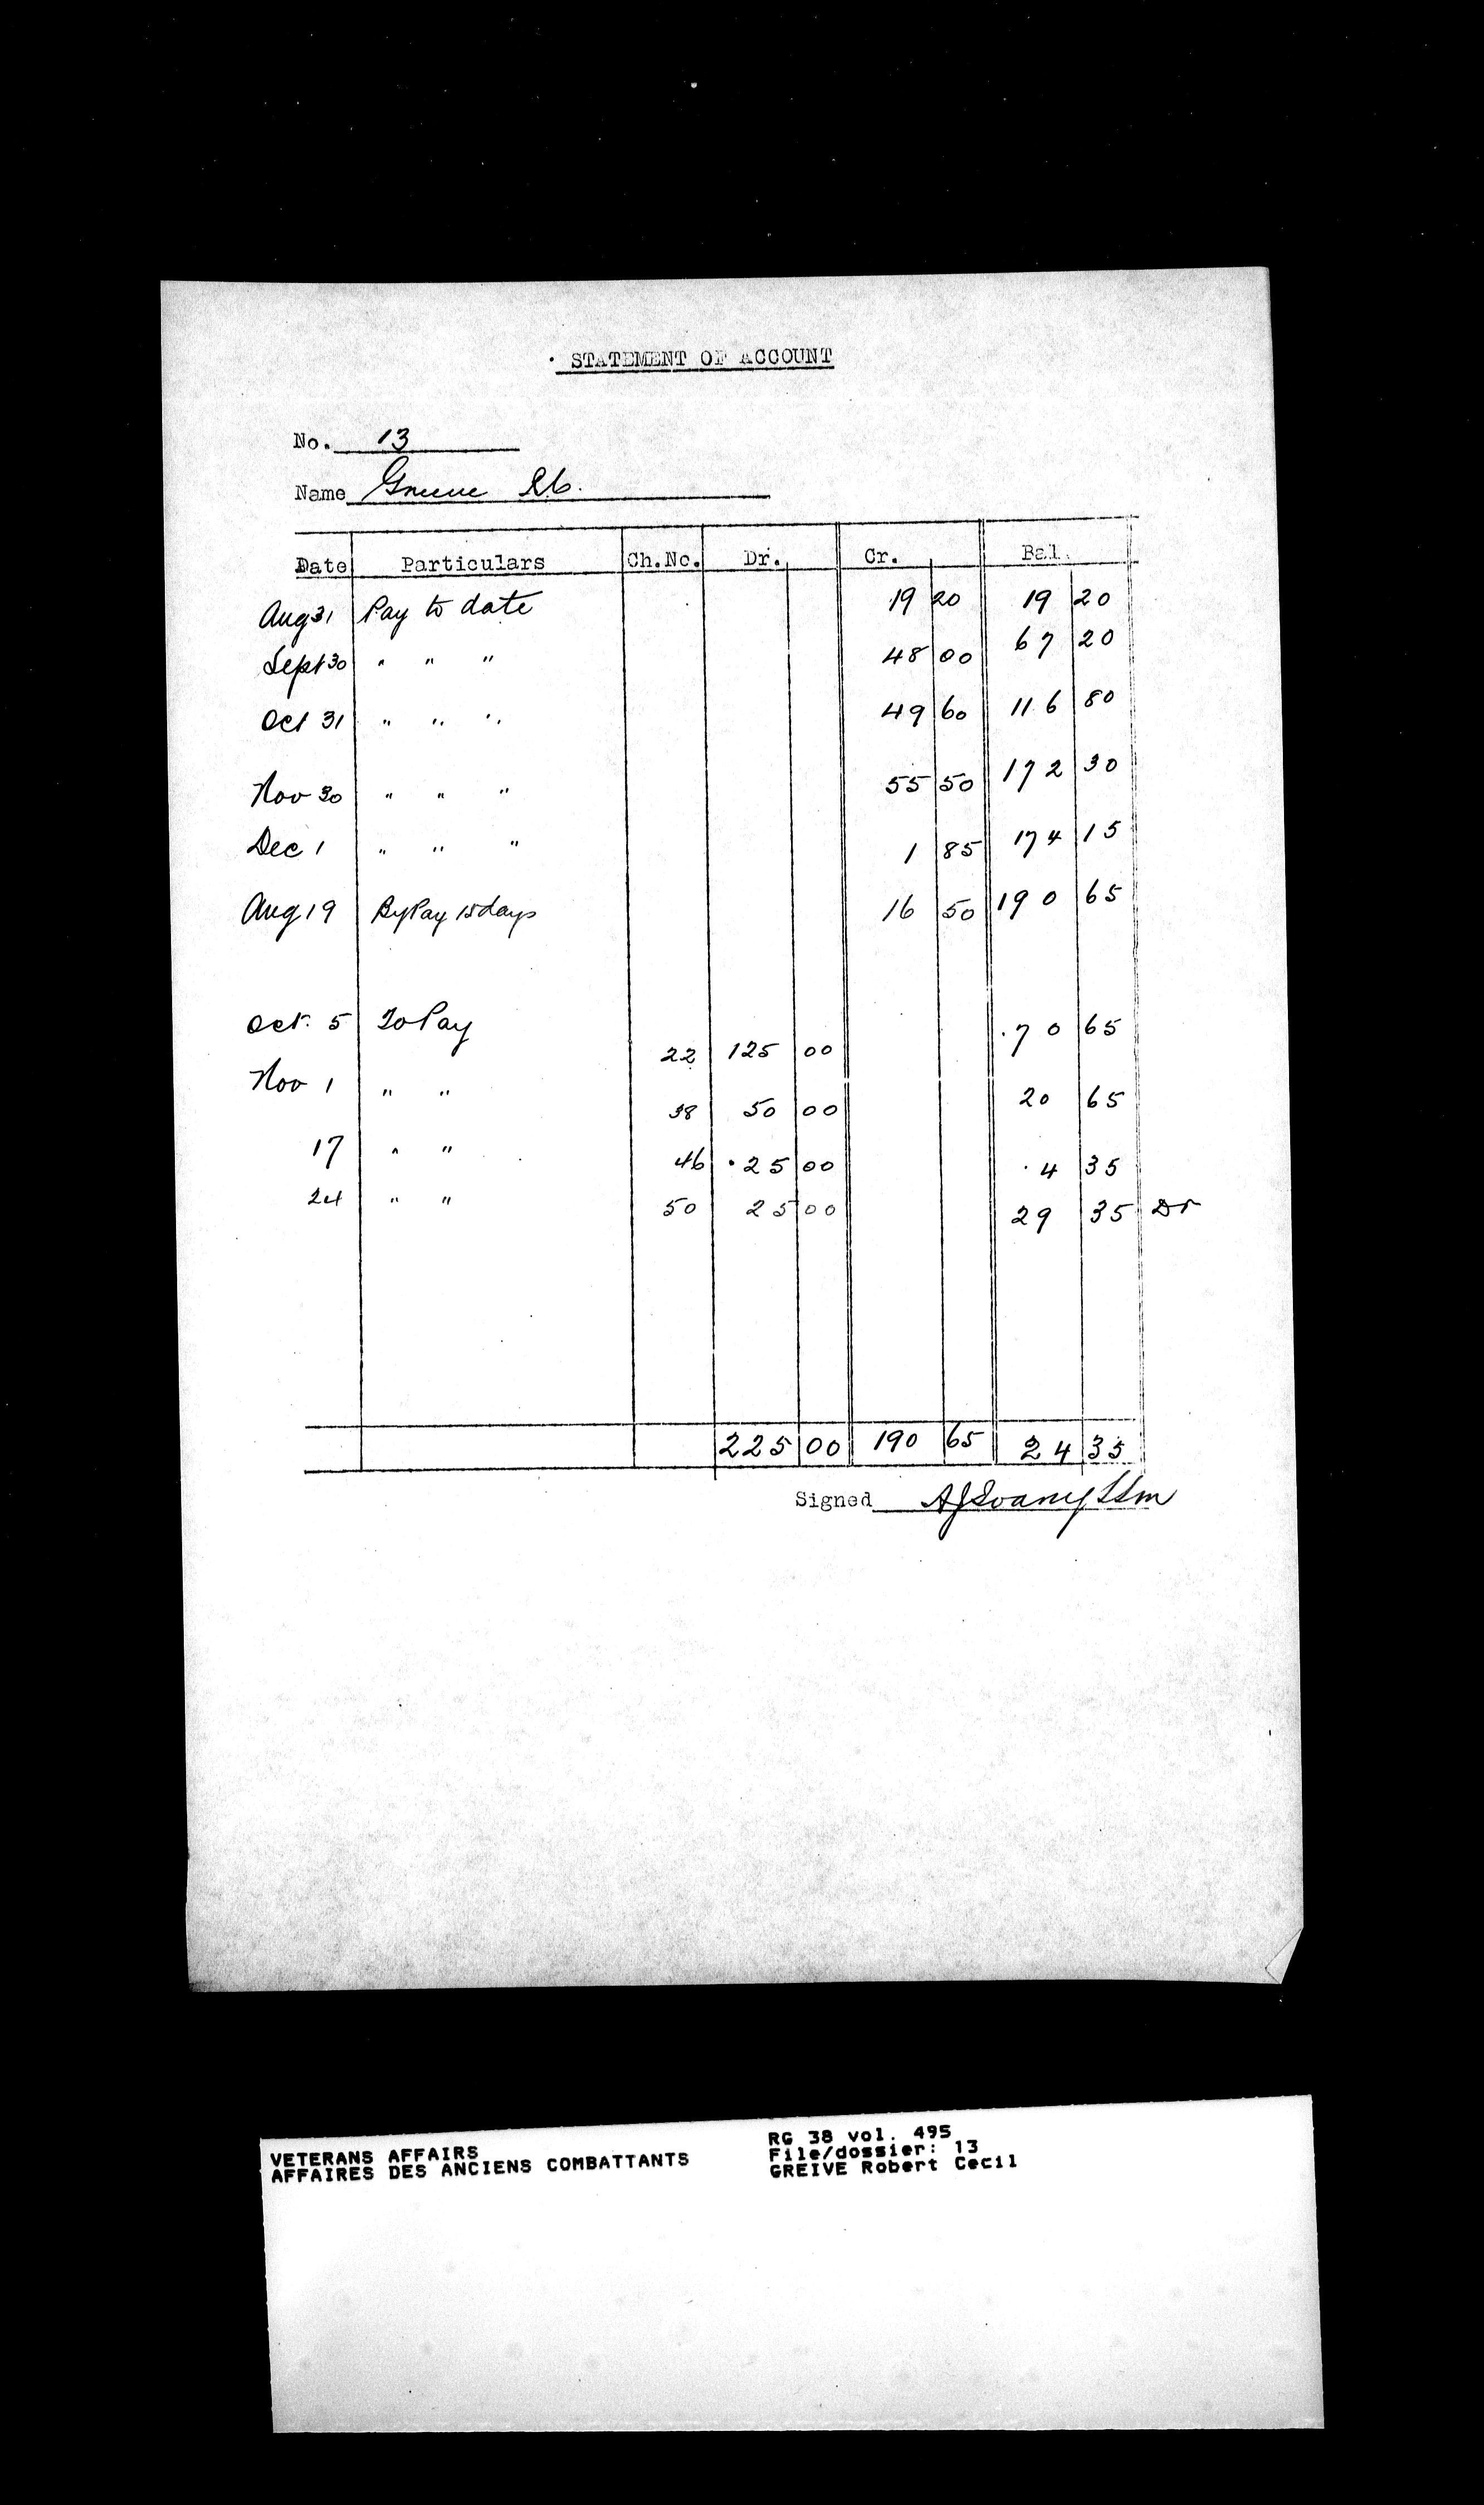 STATEMENT OF ACCOUNT
No. 13
Name Greive R.C.
Date Particulars Ch.No. Dr. Cr. Bal.
Aug 31 Pay to date 19 20 19 20
Sept 30 " " " 48 00 67 20
Oct 31 " " " 49 60 116 80
Nov 30 " " " 55 50 172 30
Dec 1 " " " 1 85 174 15
Aug 19 By Pay 15 days 16 50 190 65
Oct. 5 To Pay 22 125 00 70 65
Nov 1 " " 38 50 00 20 65
17 " " 46 25 00 4 35
24 " " 50 25 00 29 35 Dr
225 00 190 65 24 35
Signed
VETERANS AFFAIRS
AFFAIRES DES ANCIENS COMBATTANTS
RG 38 vol. 495
File/dossier: 13
GREIVE Robert Cecil